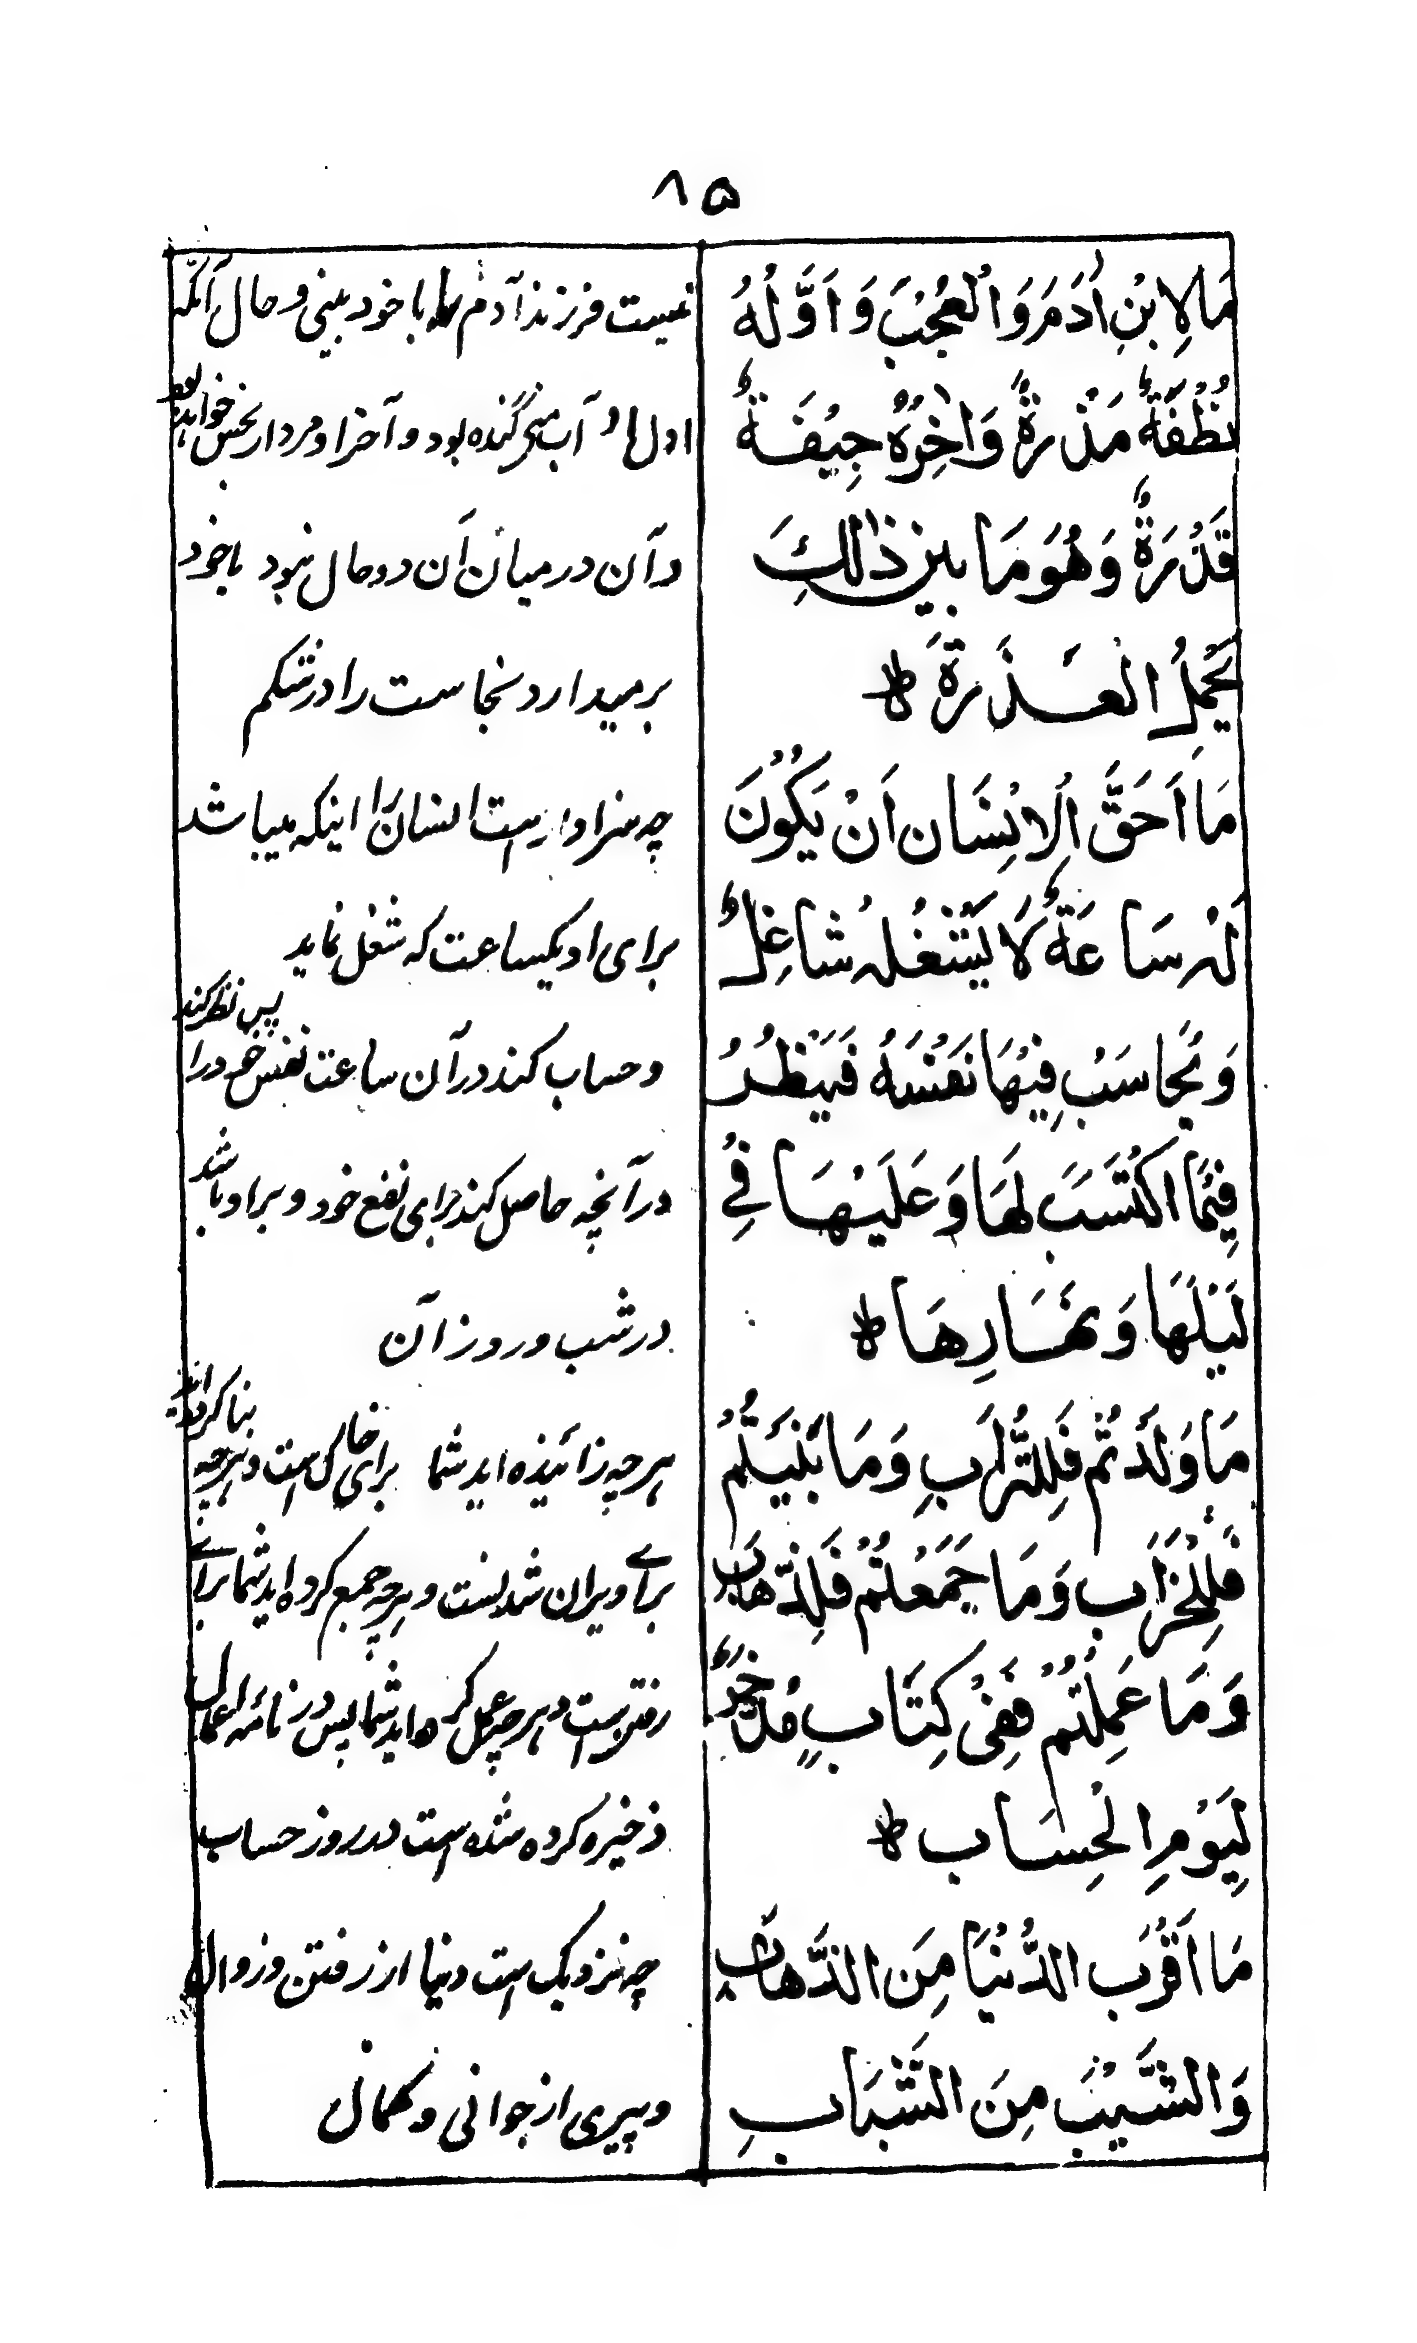 ۸۵
مَا لِابْنِ اٰدَمَ وَالْعُجْبَ وَ اَوَّلُهُ
نُطْفَةٌ مَذْرَةٌ وَاٰخِرُهُ جِيْفَةٌ
قَذْرَةٌ وَهُوَ مَا بَيْنَ ذٰلِكَ
يَحْمِلُ الْعَذَرَةَ ط
مَا اَحَقَّ الْاِنْسَانِ اَنْ يَكُوْنَ
لَهُ سَاعَةٌ لَا يَشْغَلُهُ شَاغِلٌ
وَ يُحَاسَبُ فِيْهَا نَفْسَهُ فَيَنْظُرُ
فِيْمَا اكْتَسَبَ لَهَا وَ عَلَيْهَا فِيْ
لَيْلِهَا وَ نَهَارِهَا ط
مَا وَلَدْتُمْ فَلِلتُّرَابِ وَ مَا بَنَيْتُمْ
فَلِلْخَرَابِ وَ مَا جَمَعْتُمْ فَلِلذَّهَابِ
وَ مَا عَمِلْتُمْ فَفِيْ كِتَابٍ مُدَّخِرٌ
لِيَوْمِ الْحِسَابِ ط
مَا اَقْرَبَ الدُّنْيَا مِنَ الذَّهَابِ
وَ الشَّيْبَ مِنَ الشَّبَابِ
نیست فرزند آدم را با خود بینی و حال آنکه
اول او آب منی گنده بود و آخر او مردار نجس خواهد بود
و آن در میان آن دو حال نبود با خود
بر میدارد نجاست را در شکم
چه سزاوار است انسان را اینکه میباشد
برای او یکساعت که شغل نماید
و حساب کند در آن ساعت نفس خود را پس نظر کند
در آنچه حاصل کند برای نفع خود و بر او باشد
در شب و روز آن
هر چه زائیده اید شما برای خاک است و هر چه بنا کرده اید
برای ویران شدنست و هر چه جمع کرده اید شما برای
رفتن است و هر چه عمل کرده اید شما پس در نامه اعمال
ذخیره کرده شده است در روز حساب
چه نزدیک است دنیا از رفتن و زوال
و پیری از جوانی و کمال